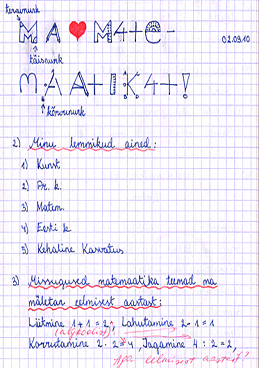 teravnurk
MA ♥ M4+E-
02.09.10
täisnurk
MAAtIK4+!
kõverunurk
2) Minu lemmikud ained:
1) Kunst
2) Pr. k.
3) Matem.
4) Eesti k.
5) Kehaline Kasvatus
3) Missugused matemaatika teemad ma
mäletan eelmisest aastast:
Liitmine 1+1=2, Lahutamine 2-1=1
Korrutamine 2·2=4 Jagamine 4:2=2,
eelmisest aastast?